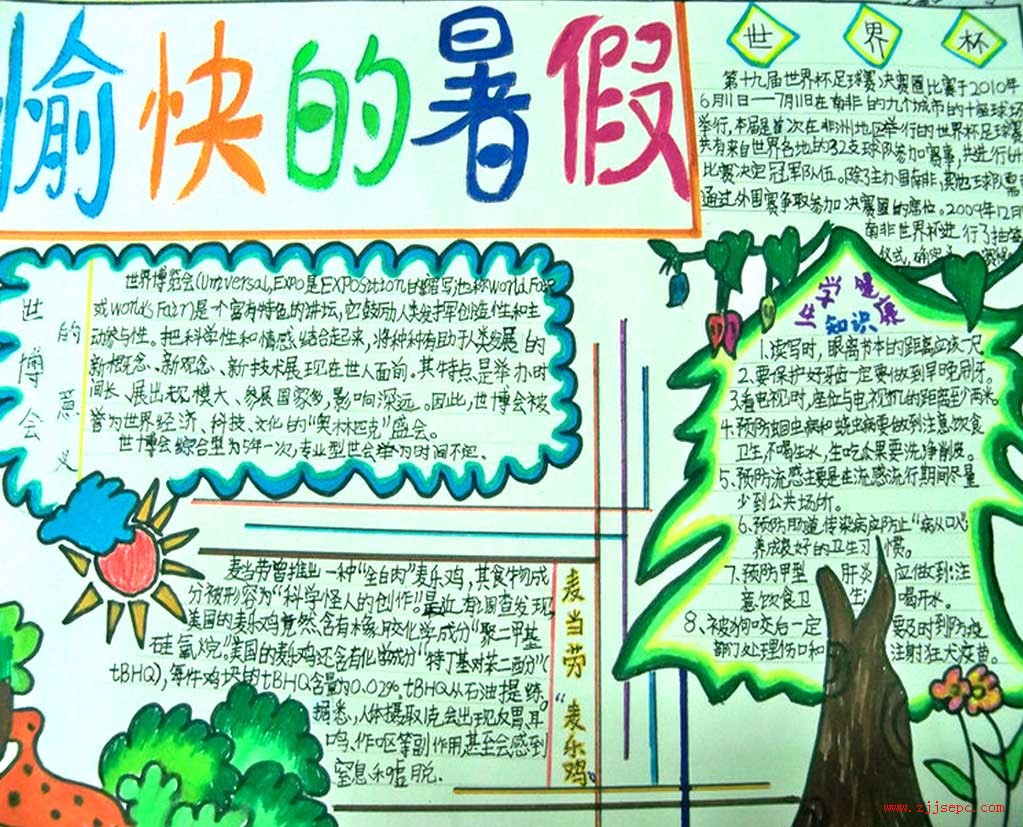 愉快的暑假
世界杯
第十九届世界杯足球赛决赛圈比赛于2010年
6月11日—7月11日在南非的九个城市的十座球场
举行,本届是首次在非洲地区举行的世界杯足球赛
共有来自世界各地的32支球队参加赛事,共进行64
比赛决定冠军队伍。除了主办国南非,其他球队需
通过外围赛争取参加决赛圈的席位。2009年12月
南非世界杯进行了抽签
仪式,确定
世博会的意义
世界博览会(Universal,Expo是EXPOSition的缩写,也称World Fair
或world's Fair)是一个富有特色的讲坛,它鼓励人类发挥创造性和主
动参与性。把科学性和情感结合起来,将种种有助于人类发展的
新概念、新观念、新技术展现在世人面前。其特点是举办时
间长、展出规模大、参展国家多,影响深远。因此,世博会被
誉为世界经济、科技、文化的“奥林匹克”盛会。
世博会综合型为5年一次,专业型世会举为时间不定。
学生健康
知识
1.读写时,眼离书本的距离应该一尺
2.要保护好牙齿一定要做到早晚刷牙。
3.看电视时,座位与电视机的距离至少两米。
4、预防蛔虫病和蛲虫病要做到注意饮食
卫生不喝生水,生吃瓜果要洗净削皮。
5、预防流感主要是在流感流行期间尽量
少到公共场所。
6、预防肠道传染病应防止“病从口入”
养成良好的卫生习惯。
7、预防甲型肝炎应做到:注
意饮食卫生 喝开水。
8、被狗咬后一定要及时到防疫
部门处理伤口和注射狂犬疫苗。
麦当劳“麦乐鸡”
麦当劳曾推出一种“全白肉”麦乐鸡,其食物成
分被形容为“科学怪人的创作”。最近,有调查发现,
美国的麦乐鸡竟然含有橡胶化学成分“聚二甲基
硅氧烷。美国的麦乐鸡还含有化学成分“特丁基对苯二酚”(
tBHQ),每件鸡块的tBHQ含量为0.02%,tBHQ从石油提炼。
据悉,人体摄取1克,会出现反胃、耳
鸣、作呕等副作用,甚至会感到
窒息和虚脱.
www.zjjsepc.com